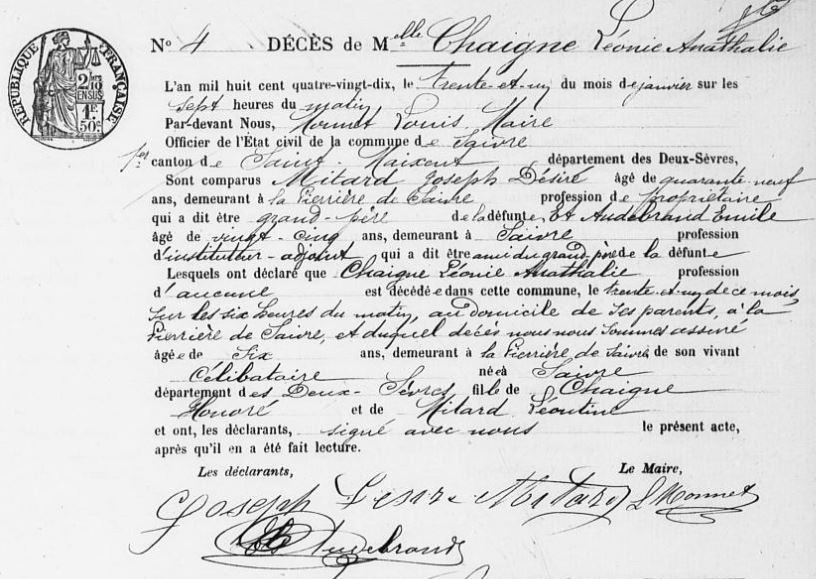 RÉPUBLIQUE FRANÇAISE
2/10 EN SUS
1F. 50c.
No 4 . DÉCÈS de Melle Chaigne Léonie Anathalie
L'an mil huit cent quatre-vingt-dix, le trente-et-un du mois de janvier sur les
sept heures du matin
Par-devant Nous, Monnet Louis Maire
Officier de l'État civil de la commune de Saivre
1er canton de Saint-Maixent département des Deux-Sèvres,
Sont comparus Mitard Joseph Désiré âgé de quarante neuf
ans, demeurant à la Pierrière de Saivre profession de propriétaire
qui a dit être grand-père de la défunte, Et Audebrand Emile
âgé de vingt-cinq ans, demeurant à Saivre profession
d'instituteur-adjoint qui a dit être ami du grand-père de la défunte
Lesquels ont déclaré que Chaigne Léonie Anathalie profession
d'aucune est décédée dans cette commune, le trente-et-un de ce mois,
sur les six heures du matin, au domicile de ses parents, à la
Pierrière de Saivre, et duquel décès nous nous sommes assuré
âgée de six ans, demeurant à la Pierrière de Saivre de son vivant
Célibataire née à Saivre
département des Deux-Sèvres fille de Chaigne
Honoré et de Mitard Léontine
et ont, les déclarants, signé avec nous le présent acte,
après qu'il en a été fait lecture.
Les déclarants, Le Maire,
Joseph Desire Mitard L Monnet
Audebrand